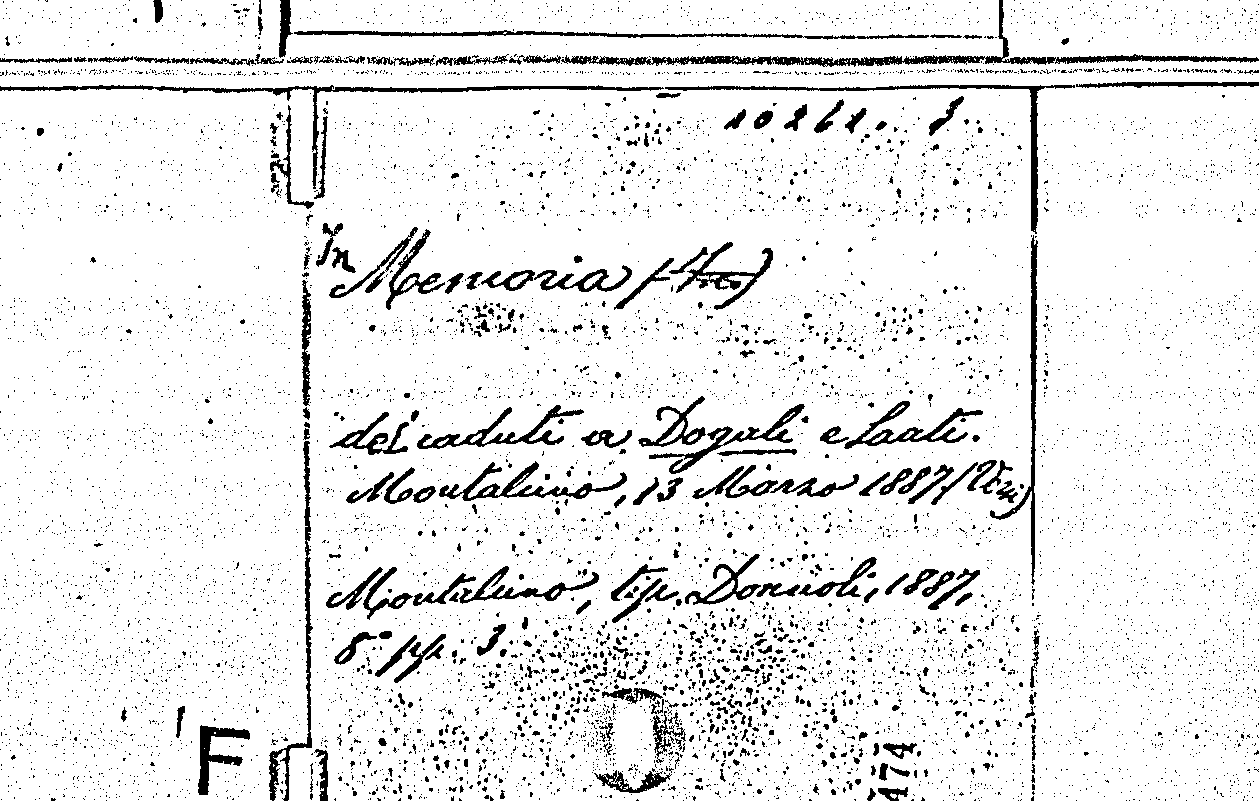 10261. 3.
In Memoria (In)
dei caduti a Dogali e Saati.
Montalcino, 13 Marzo 1887 (Versi)
Montalcino, tip. Donnoli, 1887,
8° pp. 3.
F
474